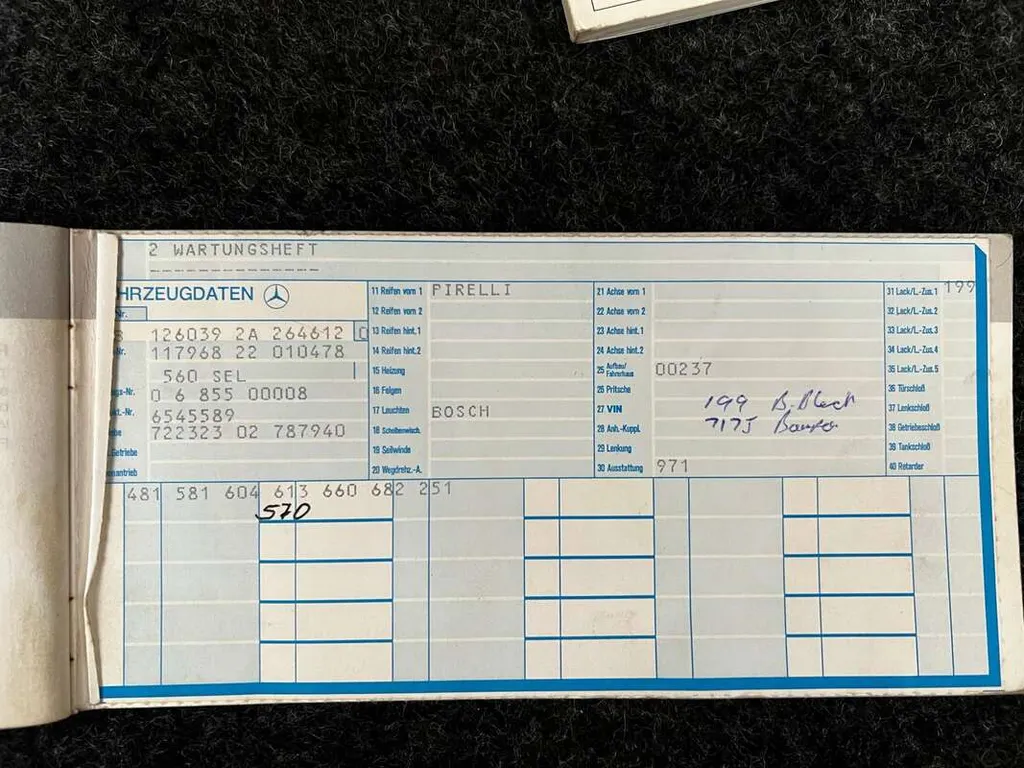 2 WARTUNGSHEFT
HRZEUGDATEN
126039 2A 264612
117968 22 010478
560 SEL
0 6 855 00008
6545589
722323 02 787940
11 Reifen vorn 1 PIRELLI
12 Reifen vorn 2
13 Reifen hint.1
14 Reifen hint.2
15 Heizung
16 Felgen
17 Leuchten BOSCH
18 Scheibenwisch.
19 Seilwinde
20 Wegdrehz.-A.
21 Achse vorn 1
22 Achse vorn 2
23 Achse hint.1
24 Achse hint.2
25 Aufbau/Fahrerhaus 00237
26 Pritsche
27 VIN
28 Anh.-Kuppl.
29 Lenkung
30 Ausstattung 971
199 B.Black
717J
31 Lack/L.-Zus.1 199
32 Lack/L.-Zus.2
33 Lack/L.-Zus.3
34 Lack/L.-Zus.4
35 Lack/L.-Zus.5
36 Türschloß
37 Lenkschloß
38 Getriebeschloß
39 Tankschloß
40 Retarder
481 581 604 613 660 682 251
570